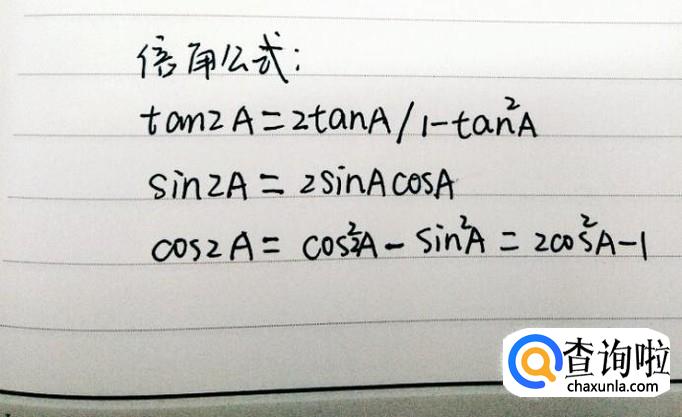 倍角公式:
tan2A=2tanA/1-tan²A
sin2A=2sinAcosA
cos2A=cos²A-sin²A=2cos²A-1
查询啦
chaxunla.com